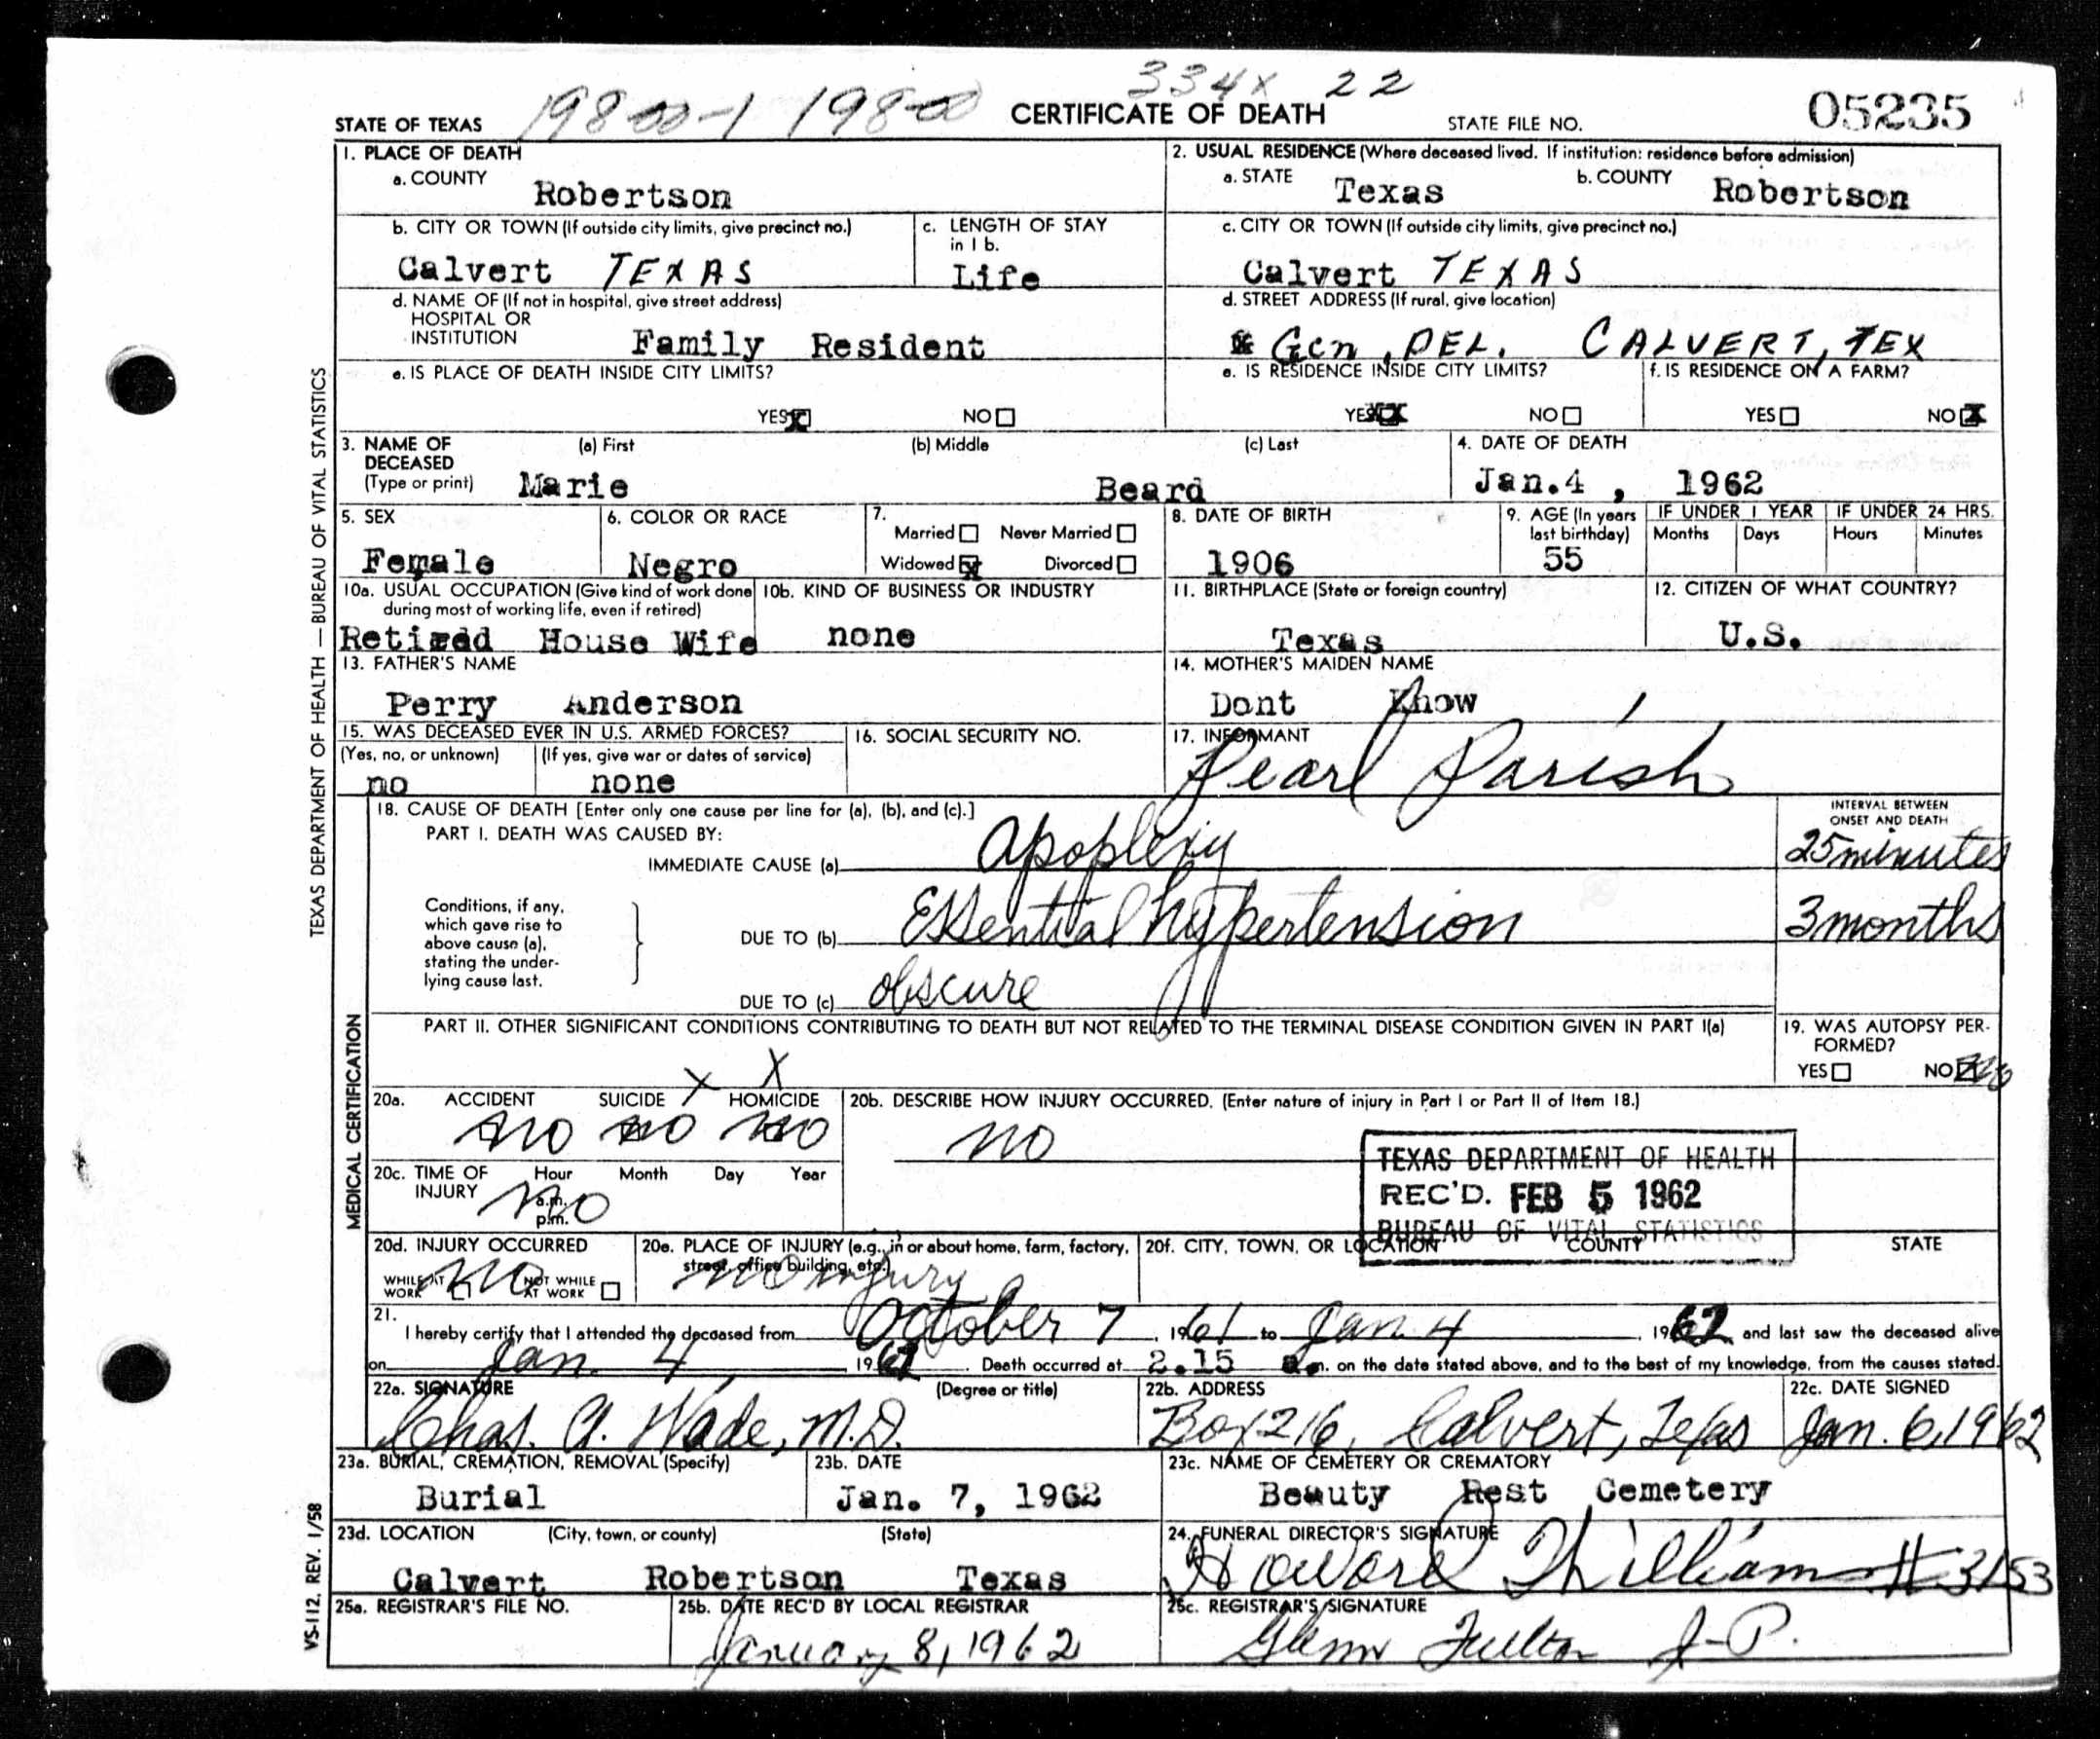 334X 22
19800-1 19800 CERTIFICATE OF DEATH
STATE OF TEXAS STATE FILE NO. 05235
1. PLACE OF DEATH
a. COUNTY Robertson
2. USUAL RESIDENCE (Where deceased lived. If institution: residence before admission)
a. STATE Texas b. COUNTY Robertson
b. CITY OR TOWN (If outside city limits, give precinct no.) Calvert TEXAS
c. LENGTH OF STAY in 1 b. Life
c. CITY OR TOWN (If outside city limits, give precinct no.) Calvert TEXAS
d. NAME OF (If not in hospital, give street address)
HOSPITAL OR
INSTITUTION Family Resident
d. STREET ADDRESS (If rural, give location)
Gen. DEL. CALVERT, TEX
e. IS PLACE OF DEATH INSIDE CITY LIMITS?
YES X NO
e. IS RESIDENCE INSIDE CITY LIMITS?
YES X NO
f. IS RESIDENCE ON A FARM?
YES NO X
3. NAME OF DECEASED (Type or print)
(a) First (b) Middle (c) Last
Marie Beard
4. DATE OF DEATH
Jan.4 , 1962
5. SEX
Female
6. COLOR OR RACE
Negro
7. Married Never Married
Widowed X Divorced
8. DATE OF BIRTH
1906
9. AGE (In years last birthday)
55
IF UNDER 1 YEAR IF UNDER 24 HRS.
Months Days Hours Minutes
10a. USUAL OCCUPATION (Give kind of work done during most of working life, even if retired)
Retired House Wife
10b. KIND OF BUSINESS OR INDUSTRY
none
11. BIRTHPLACE (State or foreign country)
Texas
12. CITIZEN OF WHAT COUNTRY?
U.S.
13. FATHER'S NAME
Perry Anderson
14. MOTHER'S MAIDEN NAME
Dont Know
15. WAS DECEASED EVER IN U.S. ARMED FORCES?
(Yes, no, or unknown) (If yes, give war or dates of service)
no none
16. SOCIAL SECURITY NO.
17. INFORMANT
Pearl Parish
18. CAUSE OF DEATH [Enter only one cause per line for (a), (b), and (c).]
INTERVAL BETWEEN ONSET AND DEATH
PART I. DEATH WAS CAUSED BY:
IMMEDIATE CAUSE (a) Apoplexy 25 minutes
Conditions, if any, which gave rise to above cause (a), stating the underlying cause last.
DUE TO (b) Essential hypertension 3 months
DUE TO (c) obscure
PART II. OTHER SIGNIFICANT CONDITIONS CONTRIBUTING TO DEATH BUT NOT RELATED TO THE TERMINAL DISEASE CONDITION GIVEN IN PART I(a)
19. WAS AUTOPSY PERFORMED?
YES NO
X X
20a. ACCIDENT SUICIDE HOMICIDE
no no no
20b. DESCRIBE HOW INJURY OCCURRED. (Enter nature of injury in Part I or Part II of Item 18.)
no
20c. TIME OF INJURY Hour Month Day Year
a.m. p.m. no
TEXAS DEPARTMENT OF HEALTH
REC'D. FEB 5 1962
BUREAU OF VITAL STATISTICS
20d. INJURY OCCURRED
WHILE AT WORK NOT WHILE AT WORK
no
20e. PLACE OF INJURY (e.g., in or about home, farm, factory, street, office building, etc.)
no injury
20f. CITY, TOWN, OR LOCATION COUNTY STATE
21. I hereby certify that I attended the deceased from October 7, 1961 to Jan. 4, 1962 and last saw the deceased alive
on Jan. 4 1962. Death occurred at 2.15 a.m. on the date stated above, and to the best of my knowledge, from the causes stated.
22a. SIGNATURE (Degree or title)
Chas. A. Wade, M.D.
22b. ADDRESS
Box 216, Calvert, Texas
22c. DATE SIGNED
Jan. 6, 1962
23a. BURIAL, CREMATION, REMOVAL (Specify)
Burial
23b. DATE
Jan. 7, 1962
23c. NAME OF CEMETERY OR CREMATORY
Beauty Rest Cemetery
23d. LOCATION (City, town, or county) (State)
Calvert Robertson Texas
24. FUNERAL DIRECTOR'S SIGNATURE
Howard Williams # 3153
25a. REGISTRAR'S FILE NO.
25b. DATE REC'D BY LOCAL REGISTRAR
January 8, 1962
25c. REGISTRAR'S SIGNATURE
Glenn Fulton J-P.
TEXAS DEPARTMENT OF HEALTH — BUREAU OF VITAL STATISTICS
MEDICAL CERTIFICATION
VS-112, REV. 1/58